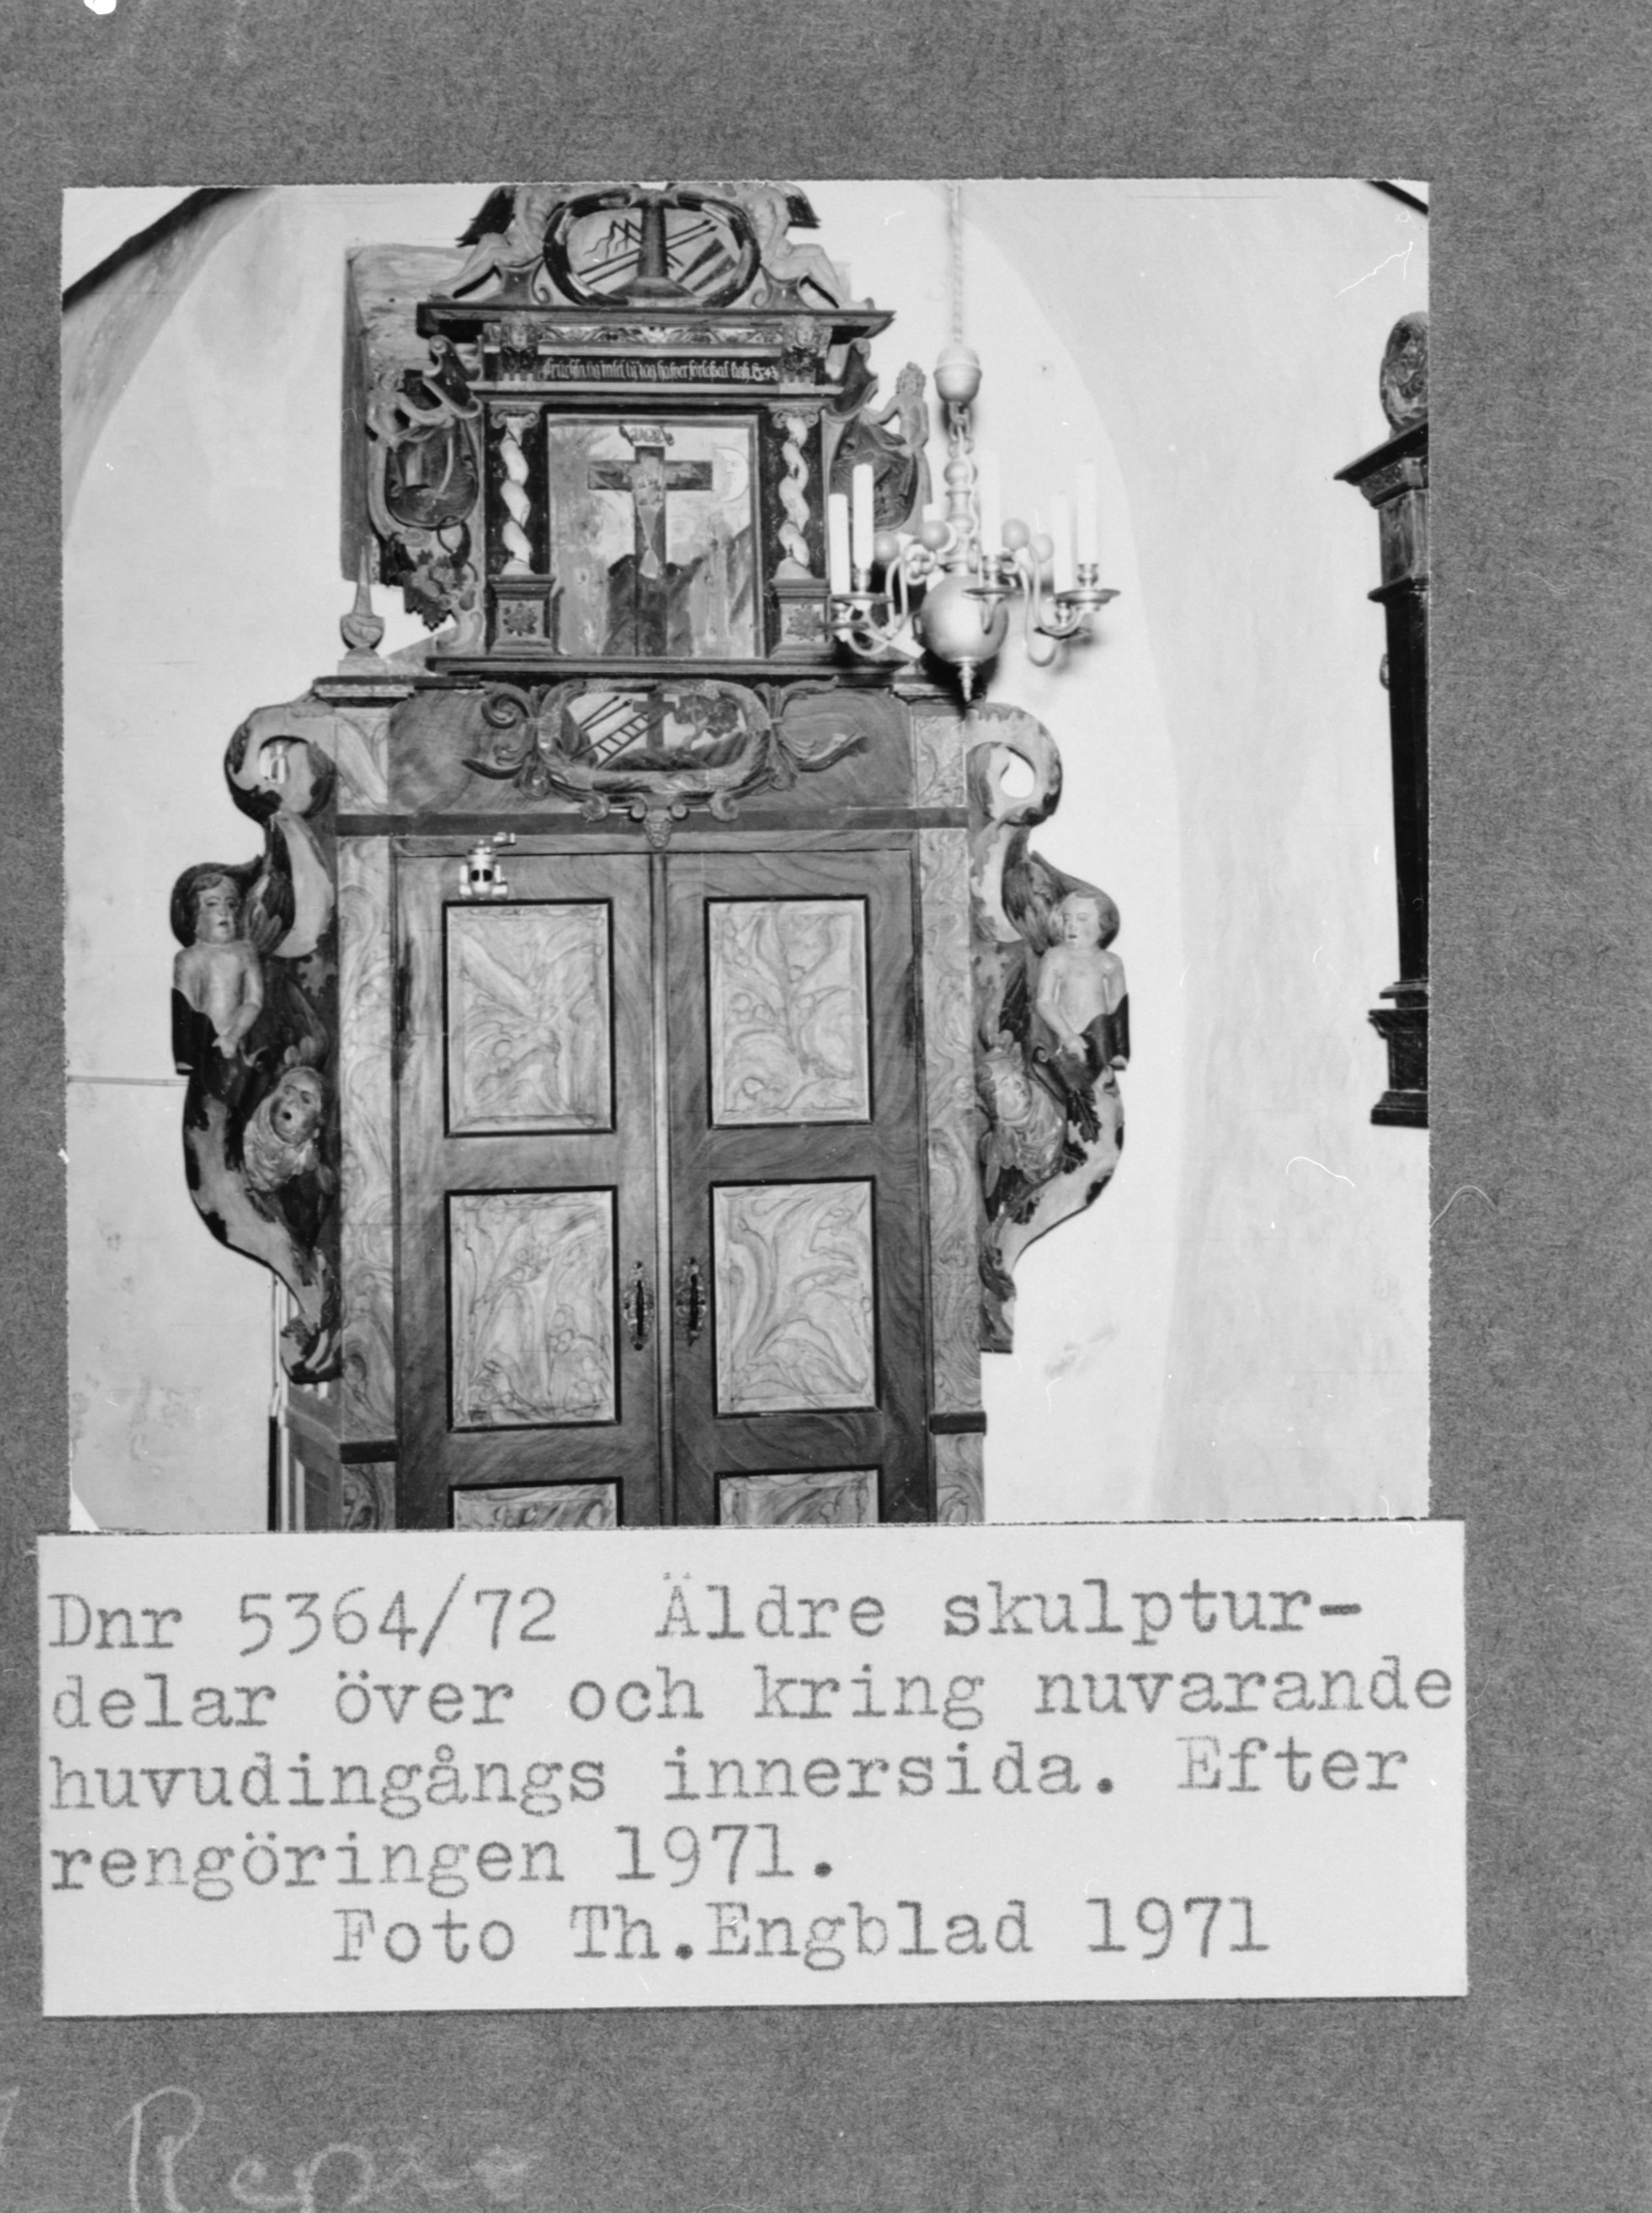 Dnr 5364/72 Äldre skulptur-
delar över och kring nuvarande
huvudingångs innersida. Efter
rengöringen 1971.
Foto Th.Engblad 1971
Repro